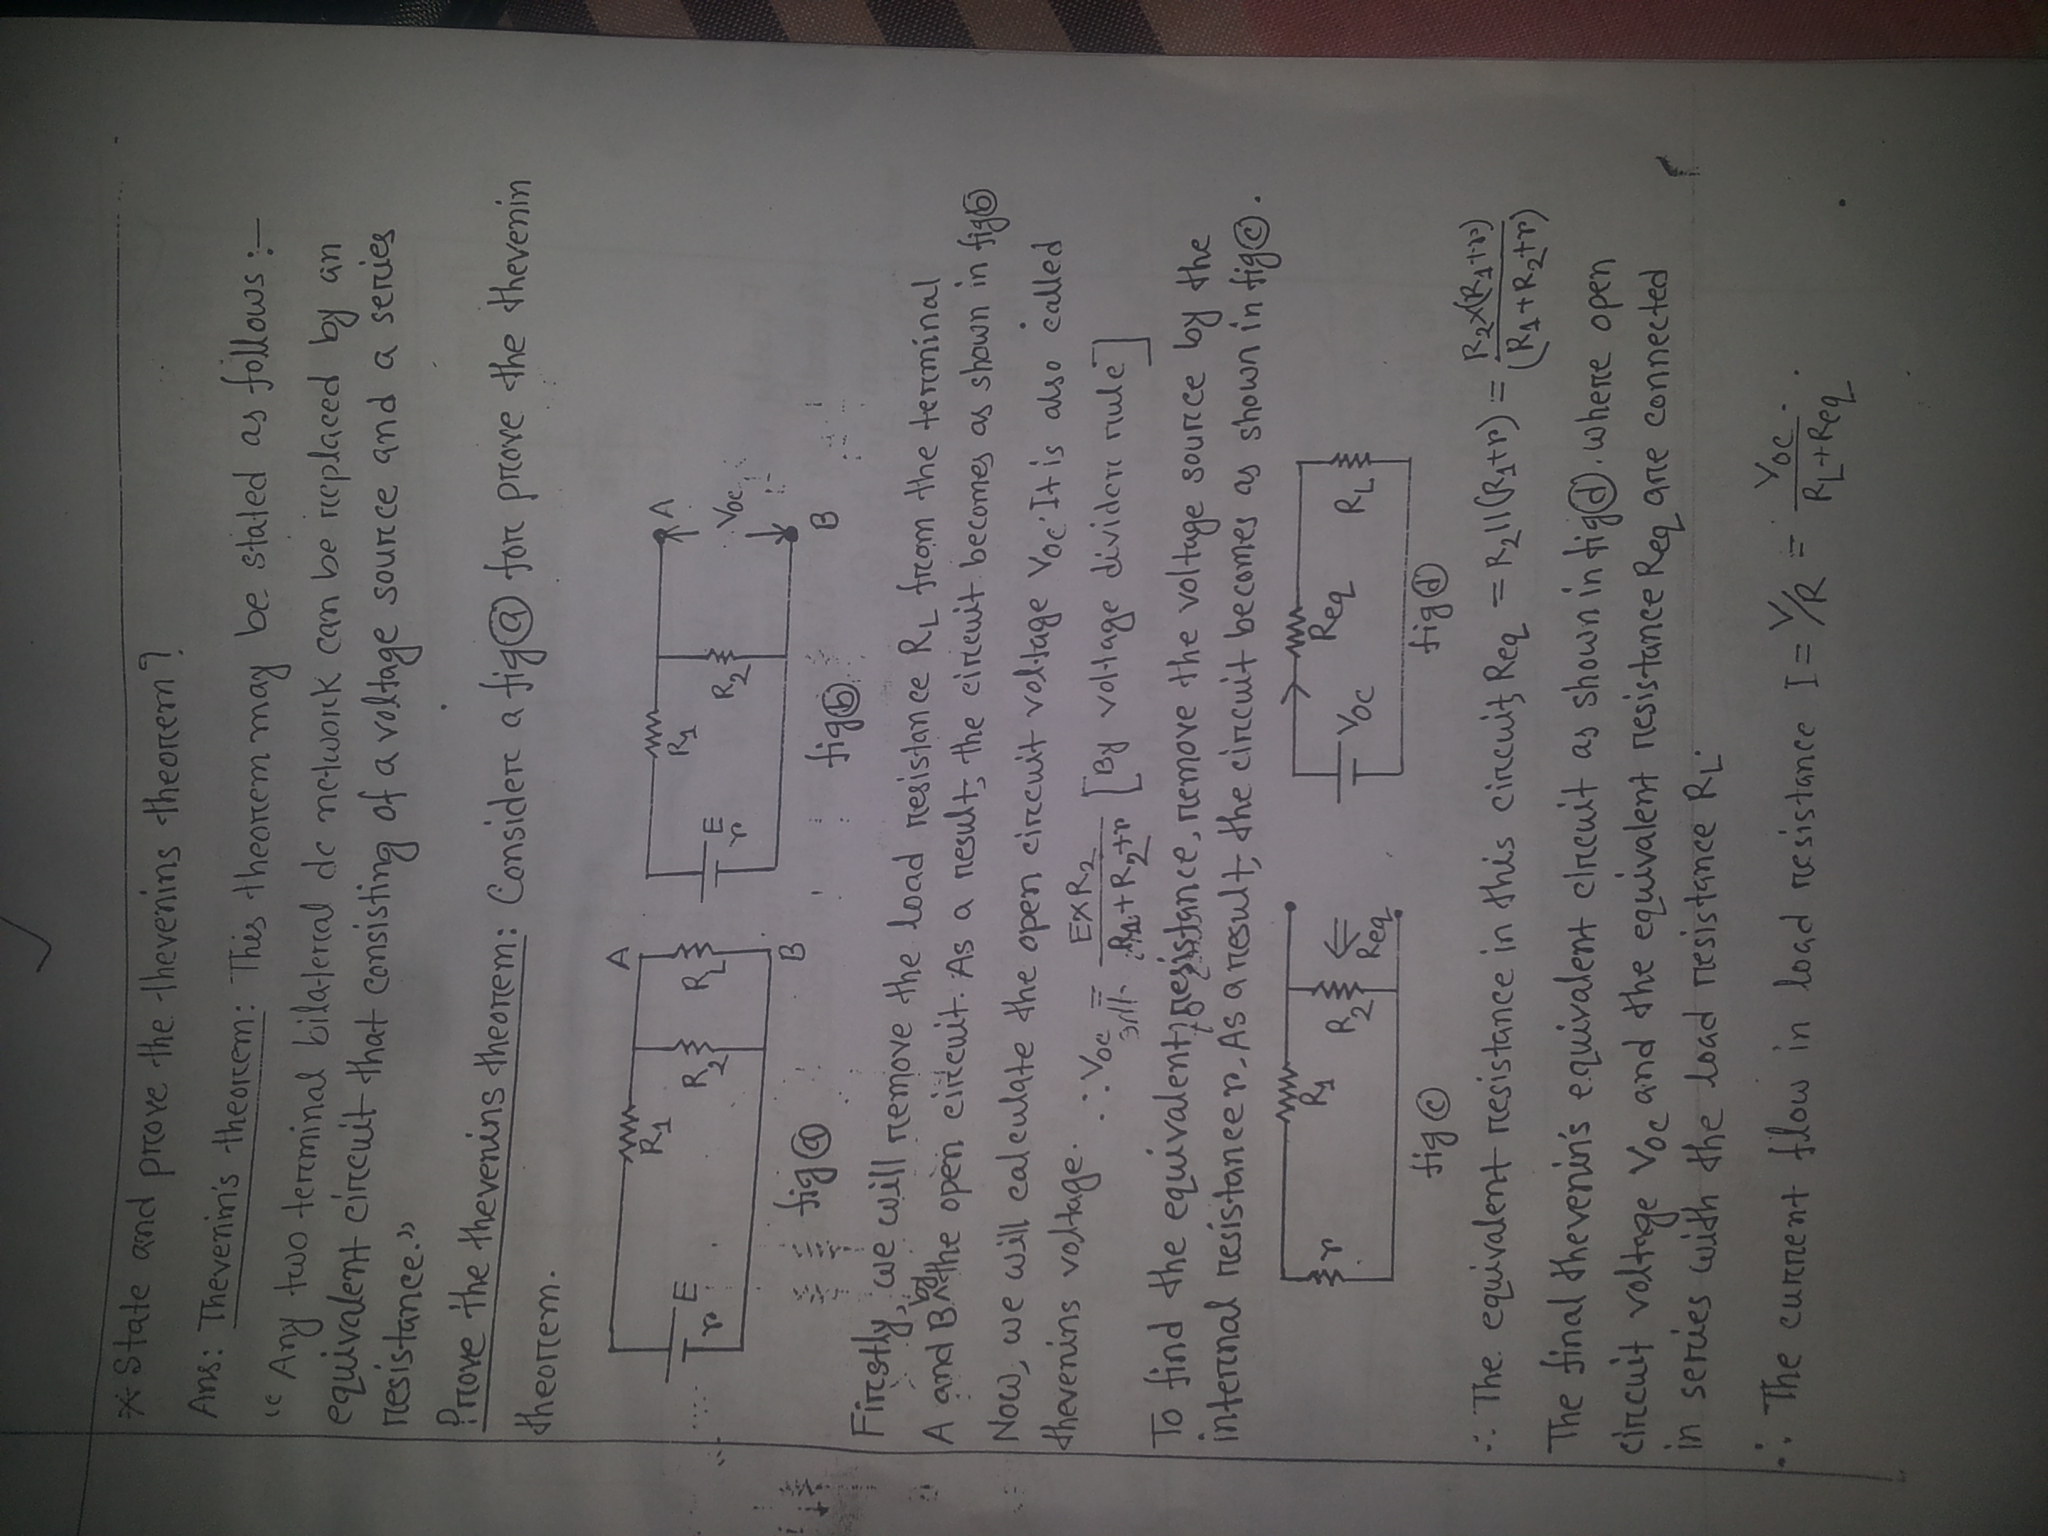 * State and prove the thevenins theorem?
Ans: Thevenin's theorem: This theorem may be stated as follows :-
"Any two terminal bilateral dc network can be replaced by an
equivalent circuit that consisting of a voltage source and a series
resistance."
Prove the thevenins theorem: Consider a fig ⓐ for prove the thevenin
theorem.
R1 A
E r R2 RL
B
fig ⓐ
R1 A
E r R2 Voc
B
fig ⓑ
Firstly, we will remove the load resistance RL from the terminal
A and B by the open circuit. As a result, the circuit becomes as shown in fig ⓑ
Now, we will calculate the open circuit voltage Voc. It is also called
thevenins voltage. ∴ Voc = E×R2 / R1+R2+r [By voltage divider rule]
To find the equivalent resistance, remove the voltage source by the
internal resistance r. As a result, the circuit becomes as shown in fig ⓒ.
r R1 R2 ⇐ Req
fig ⓒ
Voc Req RL
fig ⓓ
∴ The equivalent resistance in this circuit, Req = R2||(R1+r) = R2×(R1+r) / (R1+R2+r)
The final thevenin's equivalent circuit as shown in fig ⓓ. where open
circuit voltage Voc and the equivalent resistance Req are connected
in series with the load resistance RL.
∴ The current flow in load resistance I = V/R = Voc / RL+Req.